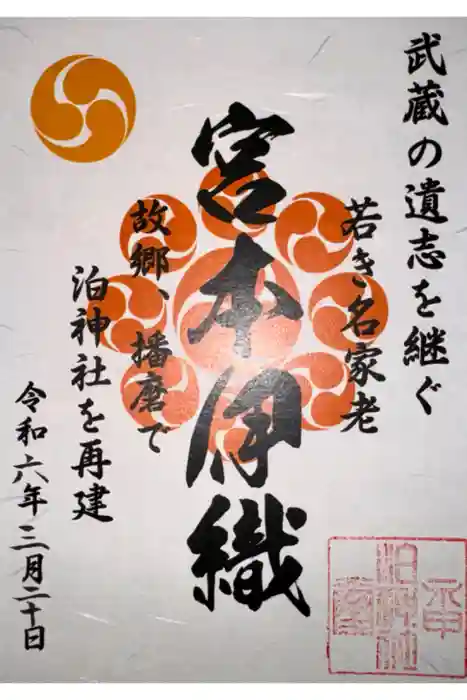 武蔵の遺志を継ぐ
若き名家老
宮本伊織
故郷、播磨で
泊神社を再建
令和六年三月二十日
泊神社